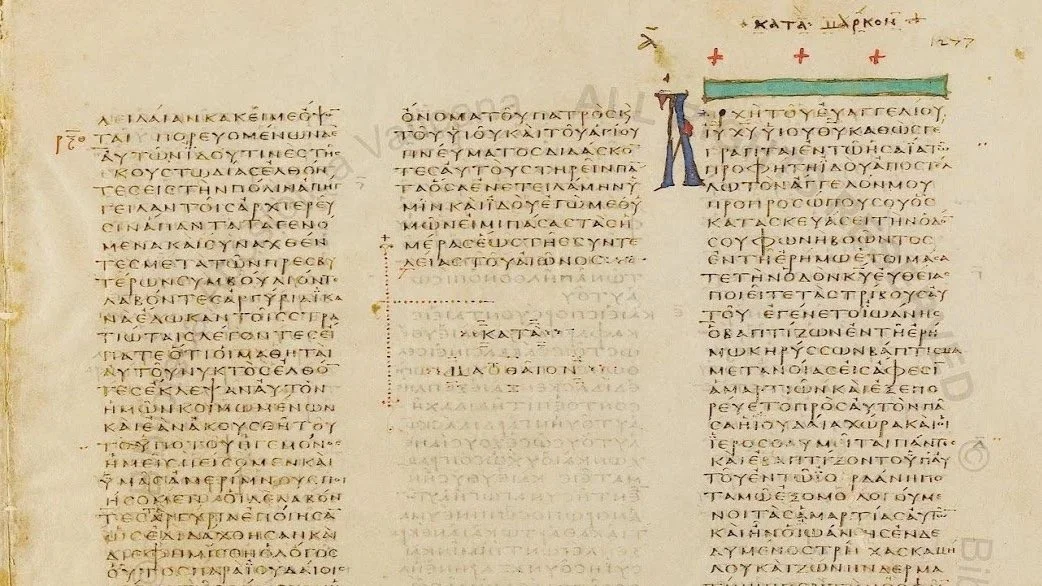 ΛΕΙΛΑΙΑΝΚΑΚΕΙΜΕΟΨΟ̅
ΤΑΙ ΠΟΡΕΥΟΜΕΝΩΝΔΕ
ΑΥΤΩΝΙΔΟΥΤΙΝΕϹΤΗϹ
ΚΟΥϹΤΩΔΙΑϹΕΛΘΟΝ
ΤΕϹΕΙϹΤΗΝΠΟΛΙΝΑΠΗΓ
ΓΕΙΛΑΝΤΟΙϹΑΡΧΙΕΡΕΥ
ϹΙΝΑΠΑΝΤΑΤΑΓΕΝΟ
ΜΕΝΑΚΑΙϹΥΝΑΧΘΕΝ
ΤΕϹΜΕΤΑΤΩΝΠΡΕϹΒΥ
ΤΕΡΩΝϹΥΜΒΟΥΛΙΟΝΤΕ
ΛΑΒΟΝΤΕϹΑΡΓΥΡΙΑΙΚΑ
ΝΑΕΔΩΚΑΝΤΟΙϹϹΤΡΑ
ΤΙΩΤΑΙϹΛΕΓΟΝΤΕϹΕΙ
ΠΑΤΕΟΤΙΟΙΜΑΘΗΤΑΙ
ΑΥΤΟΥΝΥΚΤΟϹΕΛΘΟ̅
ΤΕϹΕΚΛΕΨΑΝΑΥΤΟΝ
ΗΜΩΝΚΟΙΜΩΜΕΝΩΝ
ΚΑΙΕΑΝΑΚΟΥϹΘΗΤΟΥ
ΤΟΥΠΟΤΟΥΗΓΕΜΟΝΟϹ
ΗΜΕΙϹΠΕΙϹΟΜΕΝΚΑΙ
ΥΜΑϹΑΜΕΡΙΜΝΟΥϹΠΟΙ
ΗϹΟΜΕΝΟΙΔΕΛΑΒΟΝ
ΤΕϹΑΡΓΥΡΙΑΕΠΟΙΗϹΑ̅
ΩϹΕΔΙΔΑΧΘΗϹΑΝΚΑΙ
ΔΙΕΦΗΜΙϹΘΗΟΛΟΓΟϹ
ΟΥΤΟϹΠΑΡΑΙΟΥΔΑΙΟΙϹ
ΟΝΟΜΑΤΟΥΠΑΤΡΟϹΚΑΙ
ΤΟΥΥΙΟΥΚΑΙΤΟΥΑΓΙΟΥ
ΠΝΕΥΜΑΤΟϹΔΙΔΑϹΚΟ̅
ΤΕϹΑΥΤΟΥϹΤΗΡΕΙΝΠΑ̅
ΤΑΟϹΑΕΝΕΤΕΙΛΑΜΗΝΥ
ΜΙΝΚΑΙΙΔΟΥΕΓΩΜΕΘΥ
ΜΩΝΕΙΜΙΠΑϹΑϹΤΑϹΗ
ΜΕΡΑϹΕΩϹΤΗϹϹΥΝΤΕ
ΛΕΙΑϹΤΟΥΑΙΩΝΟϹ
ΚΑΤΑ
ΜΑΘΘΑΙΟΝ
ΚΑΤΑ ΜΑΡΚΟΝ
1277
ΑΡΧΗΤΟΥΕΥΑΓΓΕΛΙΟΥ
ΙΥ ΧΥ ΥΙΟΥΘΥΚΑΘΩϹΓΕ
ΓΡΑΠΤΑΙΕΝΤΩΗϹΑΙΑΤΩ
ΠΡΟΦΗΤΗΙΔΟΥΑΠΟϹΤΕΛ
ΛΩΤΟΝΑΓΓΕΛΟΝΜΟΥ
ΠΡΟΠΡΟϹΩΠΟΥϹΟΥΟϹ
ΚΑΤΑϹΚΕΥΑϹΕΙΤΗΝΟΔΟ̅
ϹΟΥΦΩΝΗΒΟΩΝΤΟϹ
ΕΝΤΗΕΡΗΜΩΕΤΟΙΜΑϹΑ
ΤΕΤΗΝΟΔΟΝΚΥΕΥΘΕΙΑϹ
ΠΟΙΕΙΤΕΤΑϹΤΡΙΒΟΥϹΑΥ
ΤΟΥΕΓΕΝΕΤΟΙΩΑΝΗϹ
ΟΒΑΠΤΙΖΩΝΕΝΤΗΕΡΗ
ΜΩΚΗΡΥϹϹΩΝΒΑΠΤΙϹΜΑ
ΜΕΤΑΝΟΙΑϹΕΙϹΑΦΕϹΙ̅
ΑΜΑΡΤΙΩΝΚΑΙΕΞΕΠΟ
ΡΕΥΕΤΟΠΡΟϹΑΥΤΟΝΠΑ
ϹΑΗΙΟΥΔΑΙΑΧΩΡΑΚΑΙΟΙ
ΙΕΡΟϹΟΛΥΜΕΙΤΑΙΠΑΝΤΕϹ
ΚΑΙΕΒΑΠΤΙΖΟΝΤΟΥΠΑΥ
ΤΟΥΕΝΤΩΙΟΡΔΑΝΗΠΟ
ΤΑΜΩΕΞΟΜΟΛΟΓΟΥΜΕ
ΝΟΙΤΑϹΑΜΑΡΤΙΑϹΑΥΤΩ̅
ΚΑΙΗΝΟΙΩΑΝΗϹΕΝΔΕ
ΔΥΜΕΝΟϹΤΡΙΧΑϹΚΑΜΗ
ΛΟΥΚΑΙΖΩΝΗΝΔΕΡΜΑ